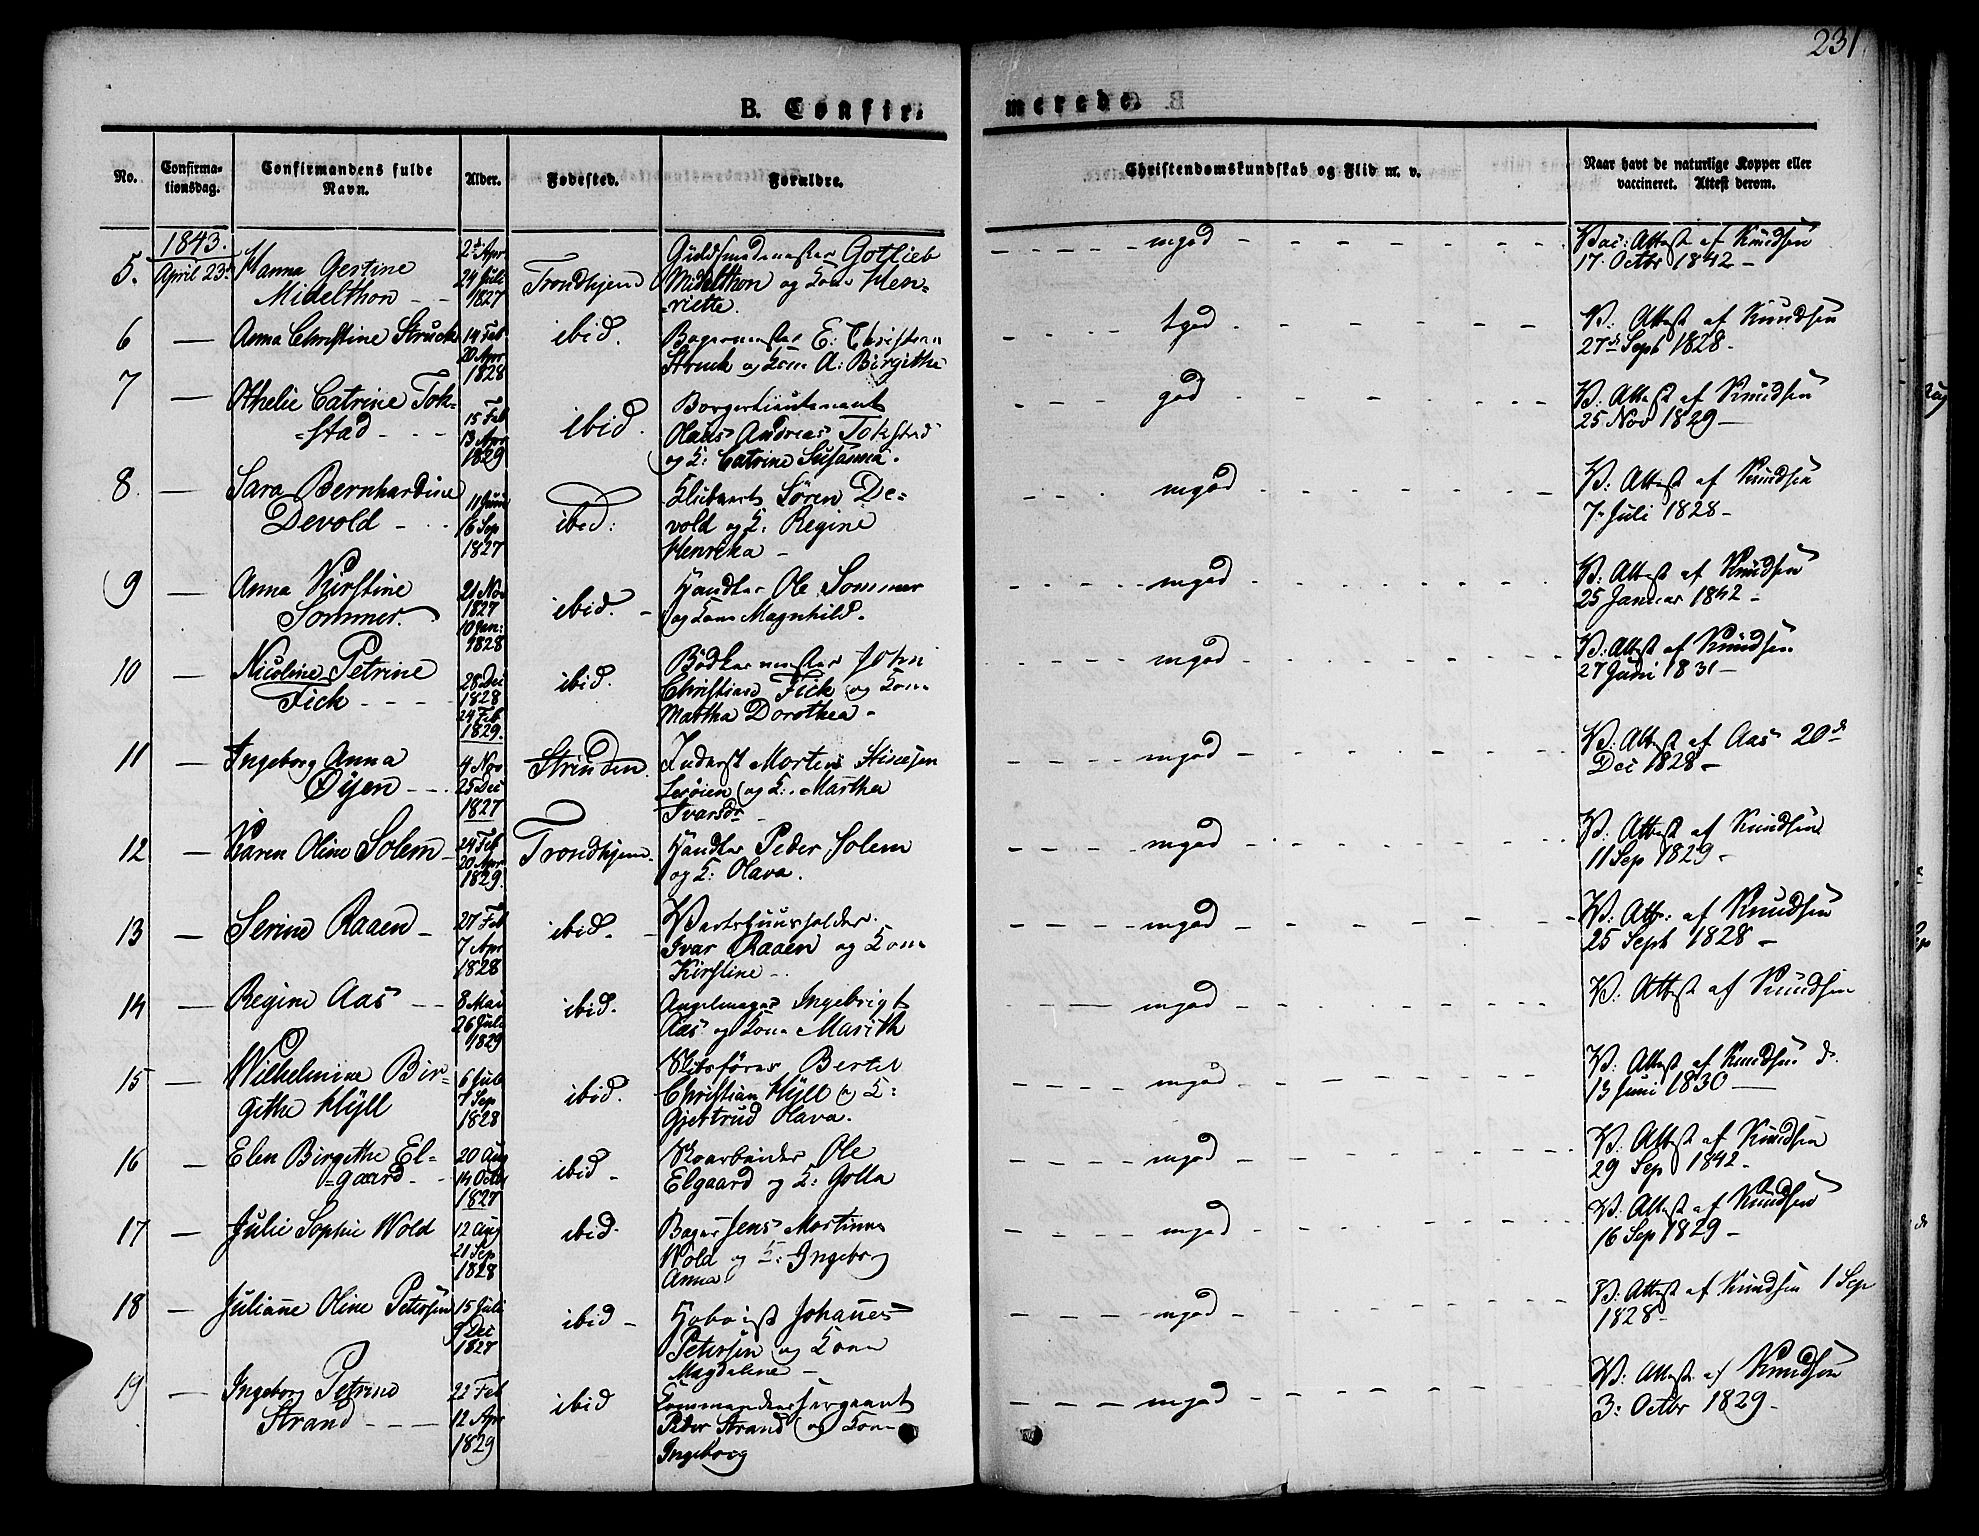 231
B. Confir-
merede.
No.
Confirma-
tionsdag.
Confirmandens fulde
Navn.
Alder.
Fødested.
Forældre.
Christendomskundskab og Flid m. v.
Naar havt de naturlige Kopper eller
vaccineret. Attest derom.
1843.
5. April 23d
Hanna Gestine
Midelthon
2d Apr
24 Juli
1827
Trondhjem
Guldsmedmester Gotlieb
Midelthon og Kone Hen-
riette.
mgod
Vac: Attest af Knudsen
17. Octbr 1842
6
Anna Christine Struck
14 Feb
20 Apr
1828
ibid.
Bagermester E: Christian
Struck og Kone A: Birgitha
tgod
V: Attest af Knudsen
27d Sept 1828.
7
Othelie Catrine Tok-
stad
15 Feb
13 Apr
1829
ibid.
Borgerlieutenant
Olaus Andreas Tokstad
og K: Catrine Susanna.
god
V: Attest af Knudsen
25 Nov 1829
8.
Sara Bernhardine
Devold
11 Juni
16 Sep
1827
ibid:
Søren De-
vold og K: Regine
Henrika
mgod
V: Attest af Knudsen
7. Juli 1828
9
Anna Kirstine
Sommer.
21 Nov
1827
10 Jan:
1828
ibid.
Handler Ole Sommer
og Kone Magnhild.
mgod
V: Attest af Knudsen
25 Januar 1842
10
Nicoline Petrine
Fick
28 Dec
1828
24 Feb
1829.
ibid.
Bødkermester John
Christian Fick og Kone
Martha Dorothea
mgod
V: Attest af Knudsen
27 Juni 1831
11
Ingeborg Anna
Øyen
4 Nov
25 Dec
1827
Strinden.
Inderst Morten
og K: Martha
Ivarsdr
mgod
V: Attest af Aas 20d
Dec 1828
12
Karen Oline Solem
24 Feb
20 Apr
1829.
Trondhjem.
Handler Peder Solem
og K: Olava.
mgod
V: Attest af Knudsen
11 Sep 1829
13
Serine Raaen
27 Feb
7 Apr
1828
ibid.
Vertshuusholder
Ivar Raaen og Kone
Kirstine
mgod
V: Att: af Knudsen
25 Sept 1828
14
Regine Aas
8 Mai
26 Juli
1829
ibid.
Ingebrigt
Aas og Kone Marith
mgod
V: Attest af Knudsen
15
Wilhelmine Bir-
githe Hÿll
6 Juli
7 Sep
1828
ibid.
Bertel
Christian Hÿll og K:
Gjertrud Olava.
mgod
V: Attest af Knudsen d.
13 Juni 1830
16
Elen Birgithe El-
gaard
20 Aug
14 Octbr
1827
ibid
Ole
Elgaard og K: Golla
mgod
V: Attest af Knudsen
29 Sep 1842
17
Julie Sophie Wold
12 Aug
21 Sep
1828
ibid.
Bager Jens Martinus
Wold og K: Ingeborg
Anna.
mgod
V: Attest af Knudsen
16 Sep 1829
18
Juliane Oline Petersen
15 Juli
9 Dec
1827
ibid
Hoboist Johannes
Petersen og Kone
Magdalene
mgod
V: Attest af Knudsen 1 Sep
1828
19
Ingeborg Petrine
Strand
22 Feb
12 Apr
1829
ibid
Commandeersergeant
Peder Strand og Kone
Ingeborg
mgod
V: Attest af Knudsen
3: Octbr 1829